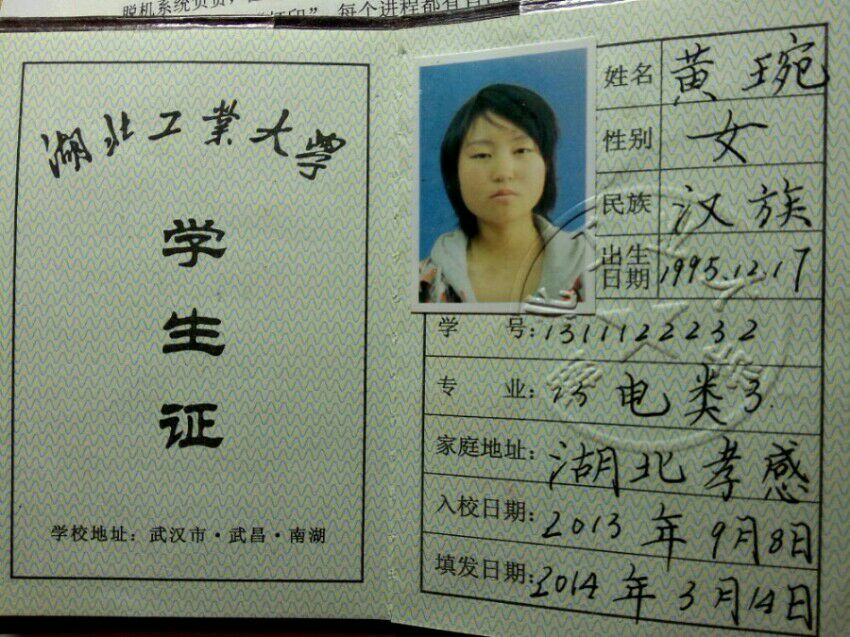 脱机系统负责,
打印”,每个进程都有自
湖北工業大学
学生证
学校地址:武汉市·武昌·南湖
姓名 黄琬
性别 女
民族 汉族
出生日期 1995.12.17
学 号:1311122232
专 业:13电类3
家庭地址:湖北孝感
入校日期:2013年9月8日
填发日期:2014年3月14日